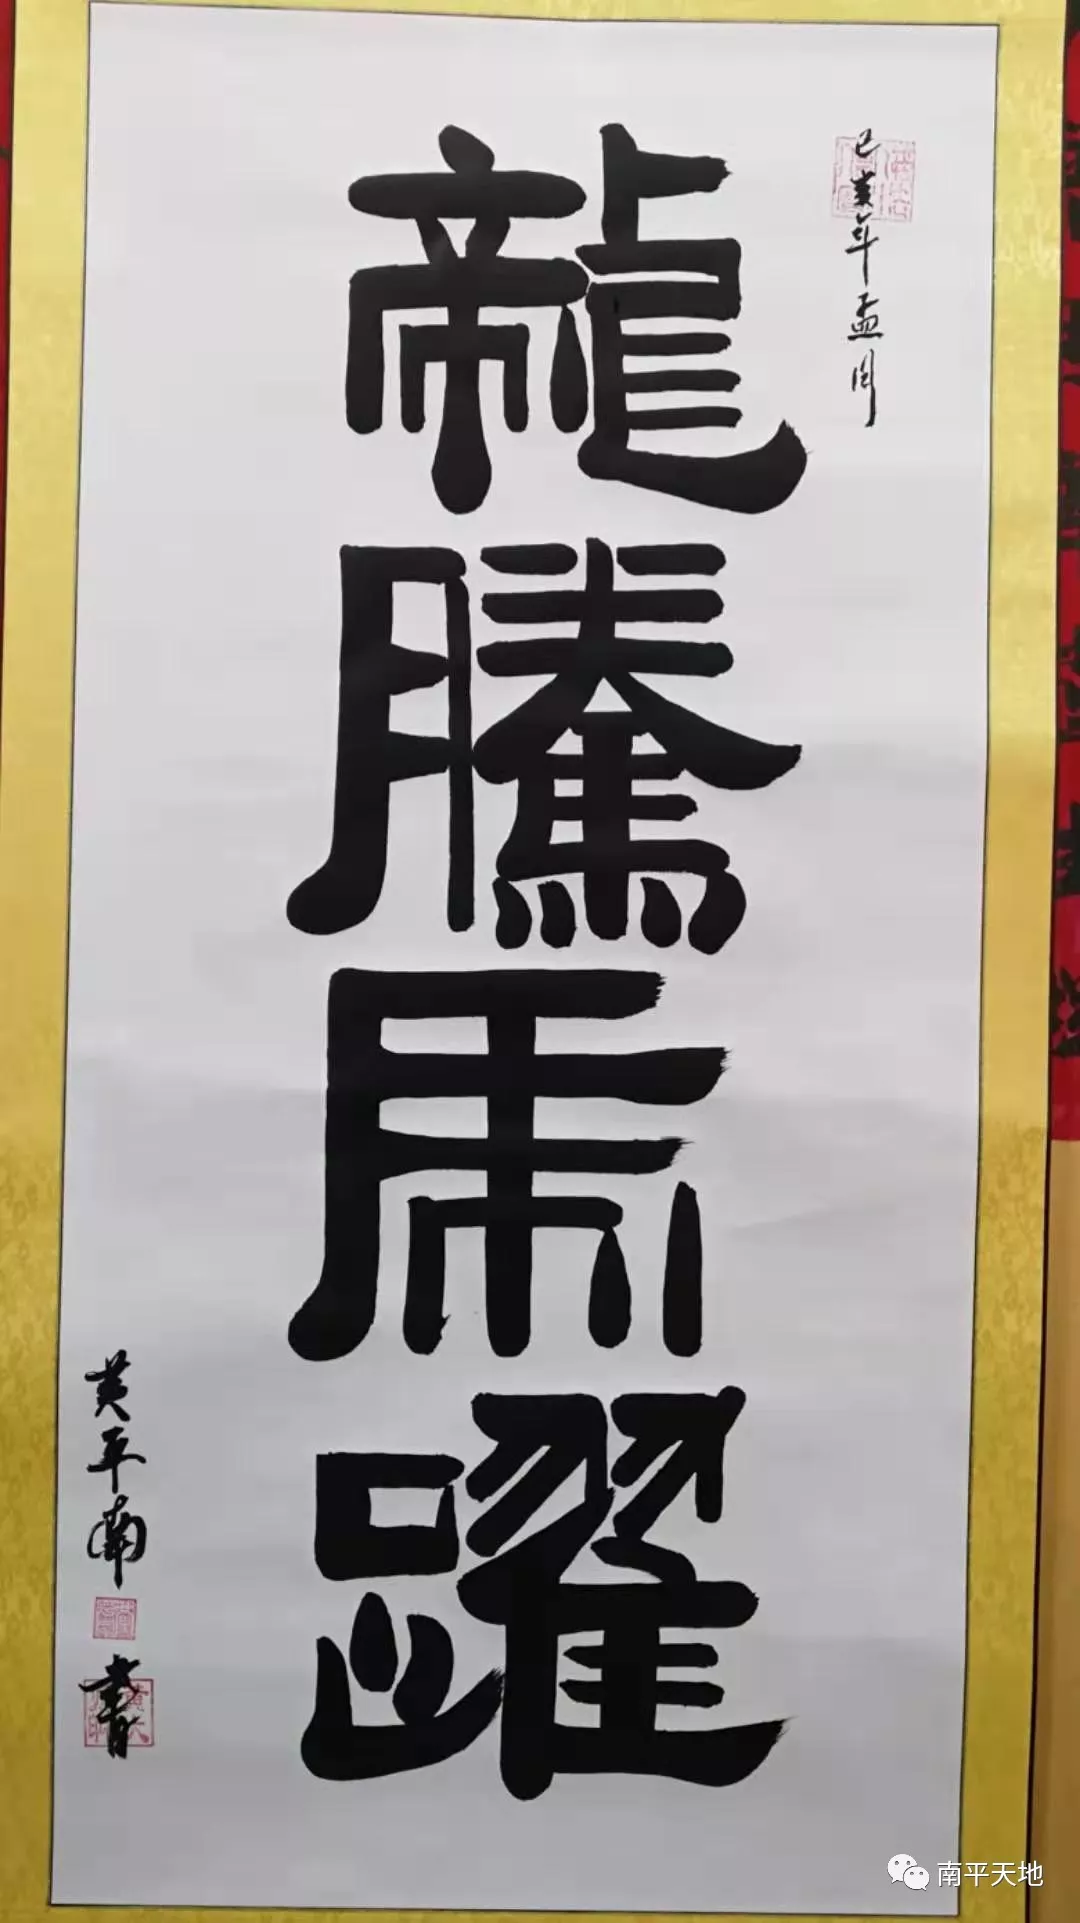 己亥年孟
龍騰虎躍
黄平南
書
南平天地